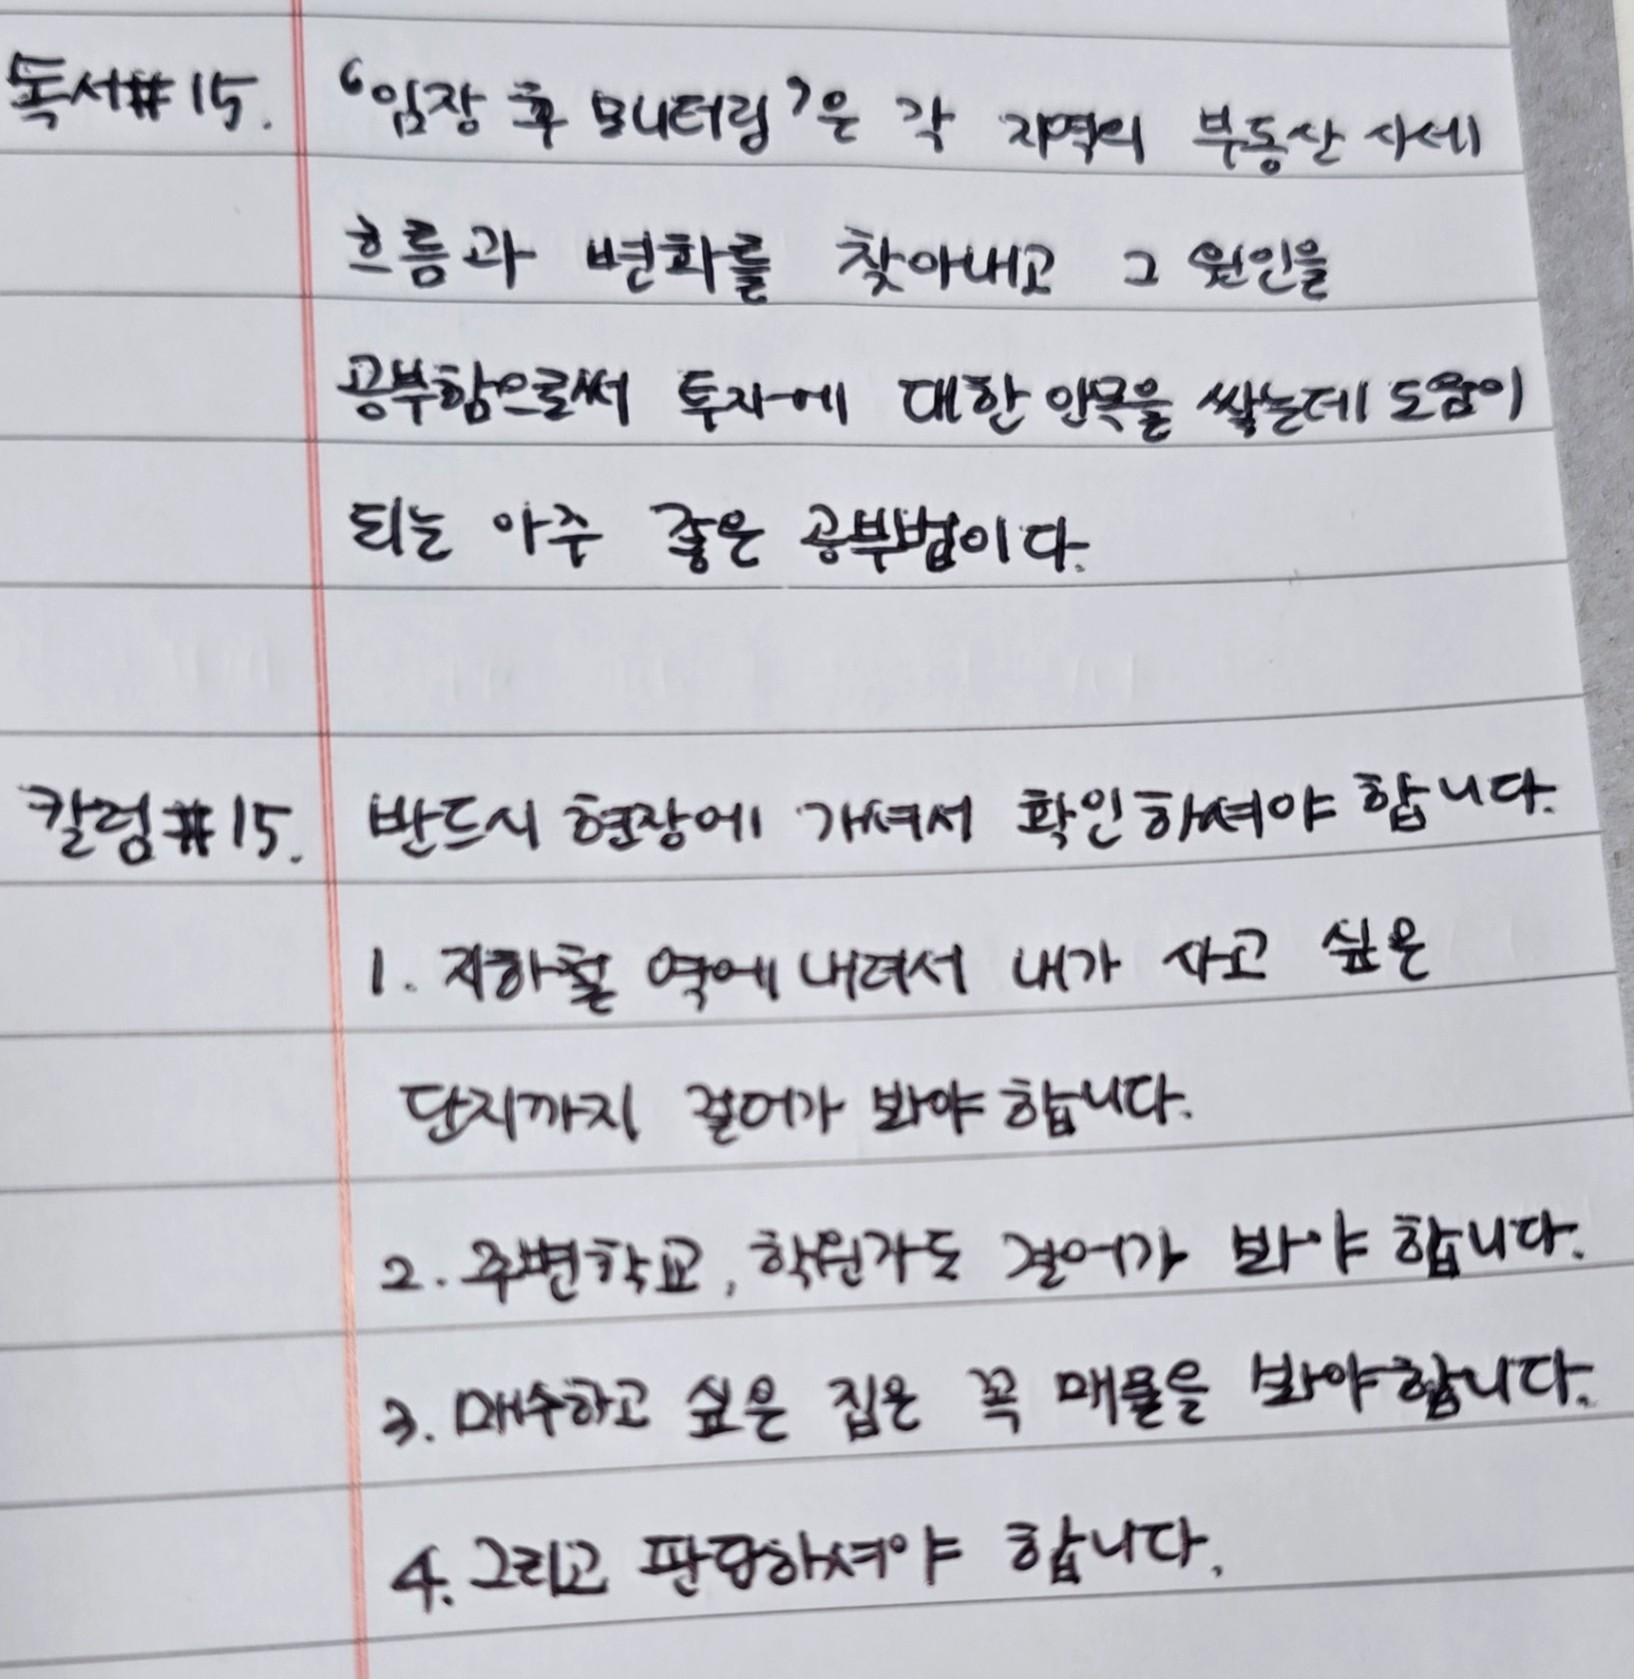 독서#15. '임장 후 모니터링'은 각 지역의 부동산 시세
흐름과 변화를 찾아내고 그 원인을
공부함으로써 투자에 대한 안목을 쌓는데 도움이
되는 아주 좋은 공부법이다.
칼럼#15. 반드시 현장에 가셔서 확인하셔야 합니다.
1. 지하철 역에 내려서 내가 사고 싶은
단지까지 걸어가 봐야 합니다.
2. 주변학교, 학원가도 걸어가 봐야 합니다.
3. 매수하고 싶은 집은 꼭 매물을 봐야합니다.
4. 그리고 판단하셔야 합니다.